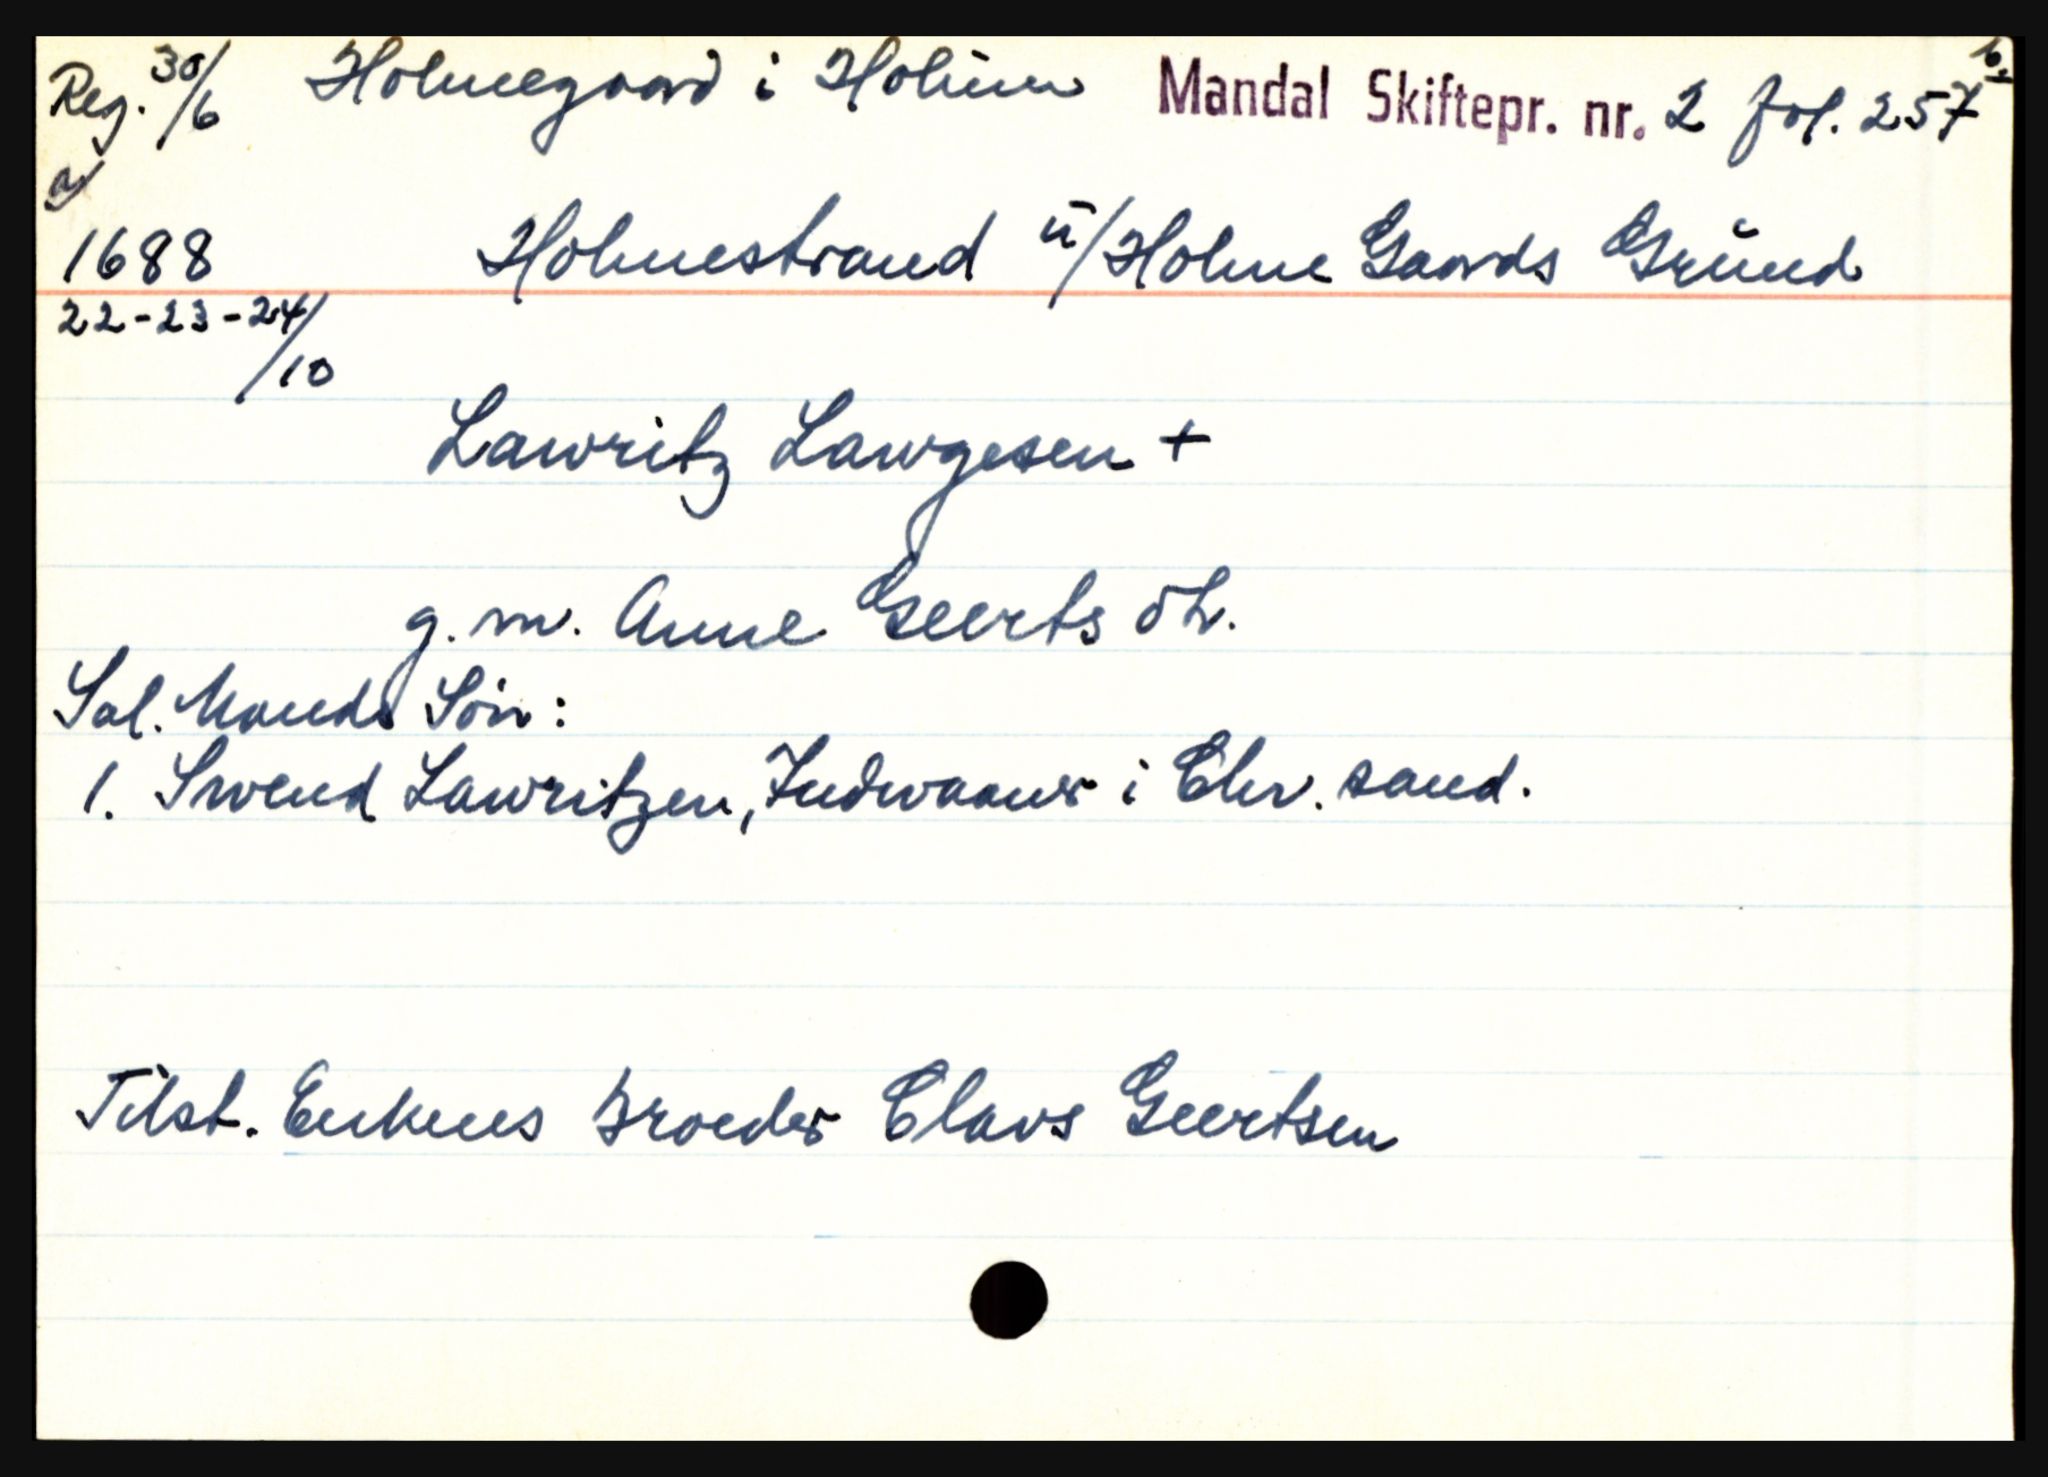 Reg. 30/6 Holmegaard i Holum Mandal Skiftepr. nr. 2 fol. 257 b.
a/
1688 Holmestrand u/Holme Gaards Grund
22-23-24/10
Lawritz Lawgesen +
g. m. Anne Geerts dtr.
Sal. Mands Søn:
1. Swend Lawritzen, Indwaaner i Chr. sand.
Tilst. Enkens Broeder Clavs Geertsen